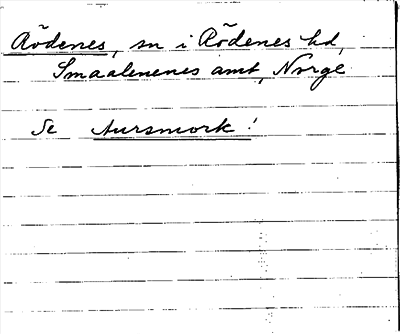 Rödenes, sn i Rödenes hd,
Smaalenenes amt, Norge
Se Aursmork!